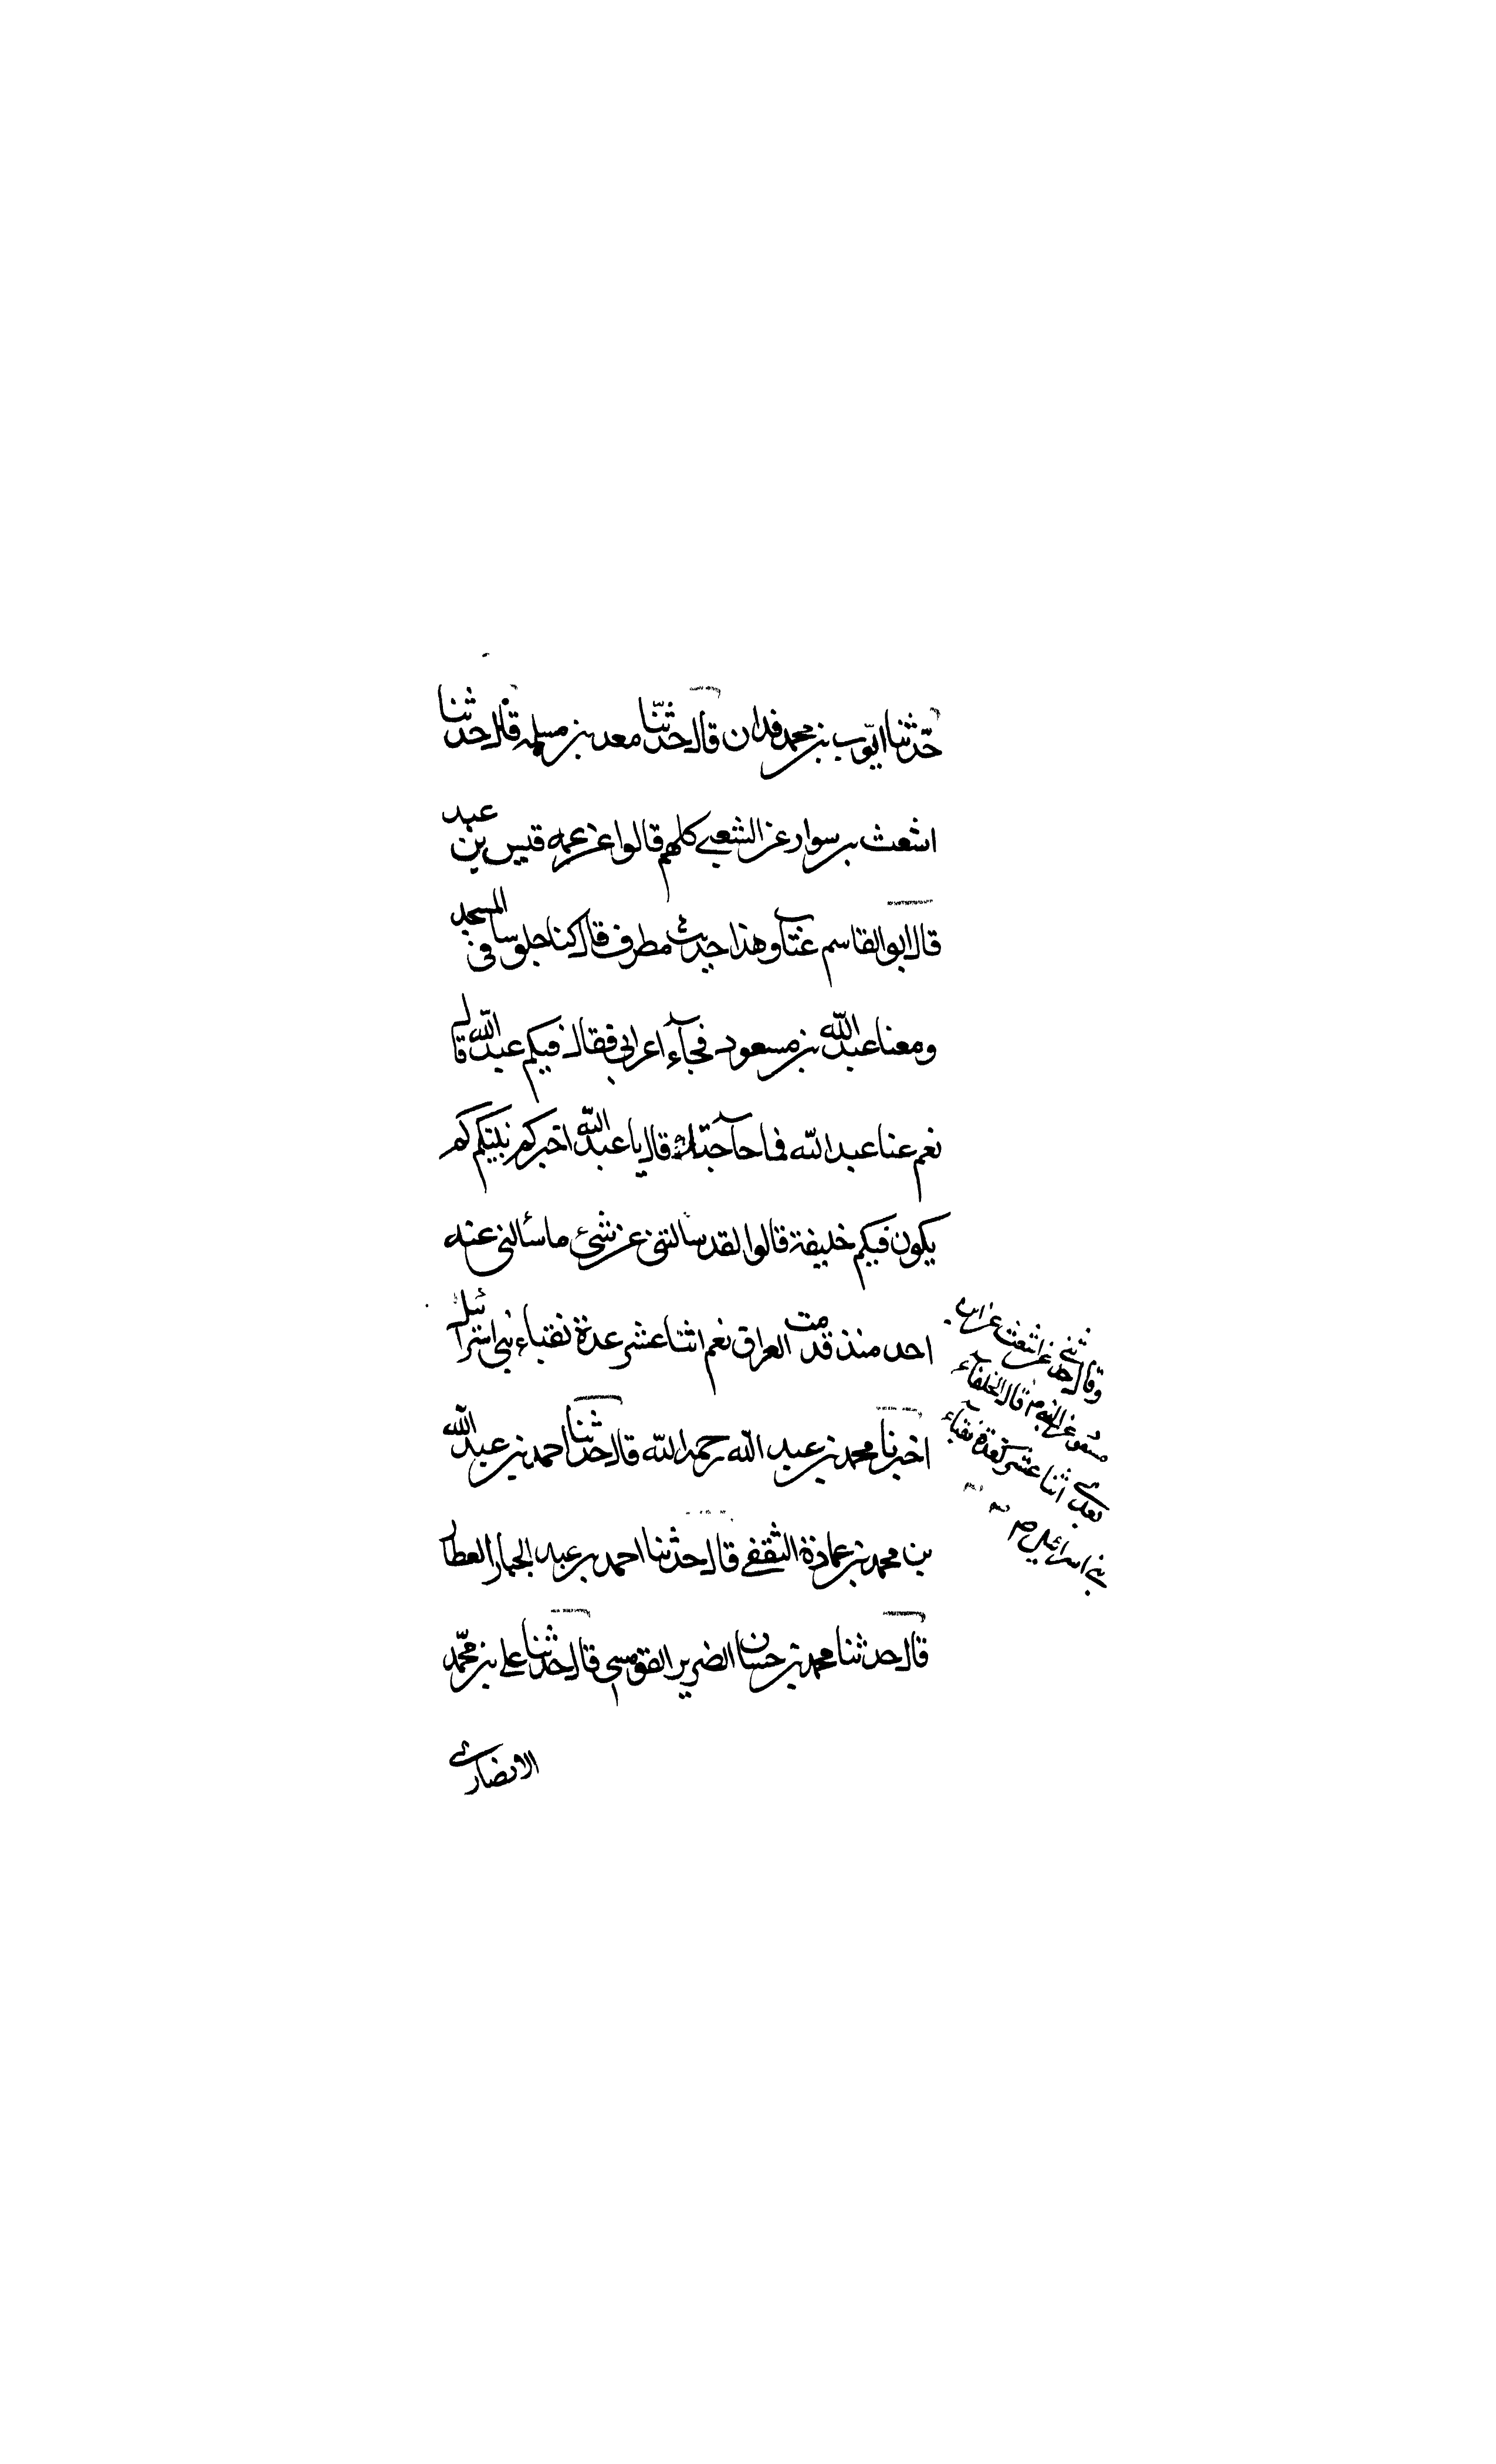 حدّثنا ايّوب بن محمد فدان قال حدثنّا معد بن مسلمه قال حدثنا
اشعث بن سوار عن الشعبي كلهم قالوا عن عمه قيس بن عبد
قال ابو القاسم عتاب وهذا حديث مطرف قال كنا جلوسا في المسجد
ومعنا عبد الله بن مسعود فجآء اعرابي فقال فيكم عبد الله قال
نعم عنا عبد الله فما حآجتك قال يا عبد الله اخبركم نبيكم كم
يكون فيكم خليفة قالوا لقد سالتني عن شئ ما سألني عنه
احد منذ قدمت العراق نعم اثنا عشر عدة نقباء بني اسرائيل
اخبرنا محمد بن عبد الله رحمه الله قال حدثنا احمد بن عبد الله
بن محمد بن عمادة الثقفي قال حدثنا احمد بن عبد الجبار العطار
قال حدثنا محمد بن حسان الضرير القومسي قال حدثنا علي بن محمّد
الانصاري
وقال حدثني عن اشعث عن ابن
مسعود عن النبي قال الخلفآء
بعدي اثنا عشر كعدة نقبآء
بني اسرائيل